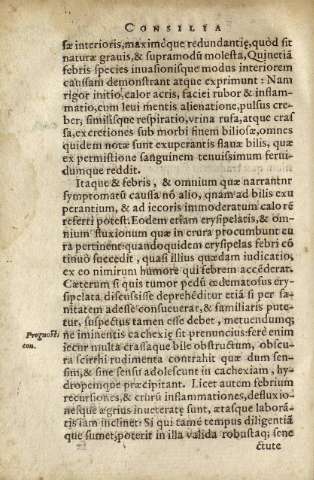 CONSILIA
sæ interioris, maximéque redundantię, quòd sit
naturæ grauis, & supramodū molesta, Quinetiā
febris species inuasionisque modus interiorem
caussam demonstrant atque exprimunt: Nam
rigor initio, calor acris, faciei rubor & inflam-
matio, cum leui mentis alienatione, pulsus cre-
ber, similisque respiratio, vrina rufa, atque cras
sa, excretiones sub morbi finem biliosæ, omnes
quidem notæ sunt exuperantis flauæ bilis, quæ
ex permistione sanguinem tenuissimum ferui-
dumque reddit.
Itaque & febris, & omnium quæ narrantnr
symptomatū caussa nō alio, quam ad bilis exu
perantium, & ad iecoris immoderatum calorē
referri potest. Eodem etiam erysipelatis, & om-
nium fluxionum quæ in crura procumbunt cu
ra pertinent: quandoquidem erysipelas febri cō
tinuò succedit, quasi illius quædam iudicatio,
ex eo nimirum humore qui febrem accēderat.
Cæterum si quis tumor pedū œdematosus ery-
sipelata discussisse deprehēditur etiā si per sa-
nitatem adesse consueuerat, & familiaris pute-
tur, suspectus tamen esse debet, metuendumq;
Prognosti
con.
ne iminentis cachexię sit prenuncius: ferè enim
iecur multa crassaque bile obstructum, obscu-
ra scirrhi rudimenta contrahit quæ dum sen-
sim, & sine sensu adolescunt in cachexiam, hy-
dropemque præcipitant. Licet autem febrium
recursiones, & crurū inflammationes, defluxio-
nesque ægrius inueteratę sunt, ætasque laborā-
tis iam inclinet: Si qui tamē tempus diligentiā
que sumet, poterit in illa valida robustaq; sene
ctute